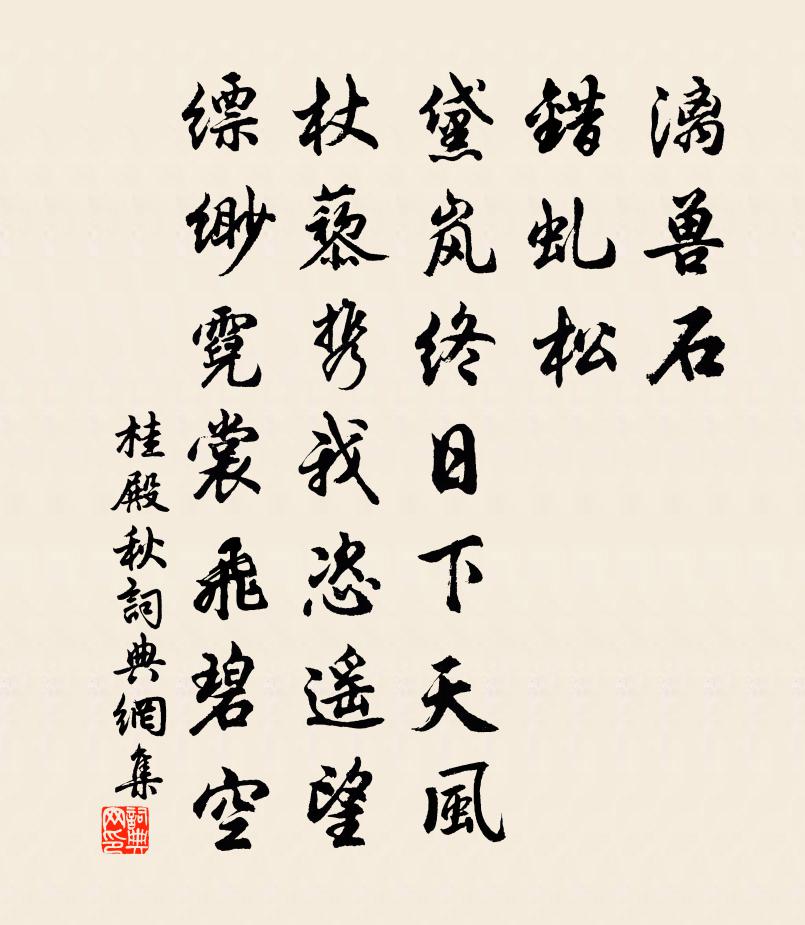 漓兽石
錯虬松
黛岚终日下天風
杖藜携我恣遥望
缥缈霓裳飛碧空
桂殿秋詞典網集
詞典网印